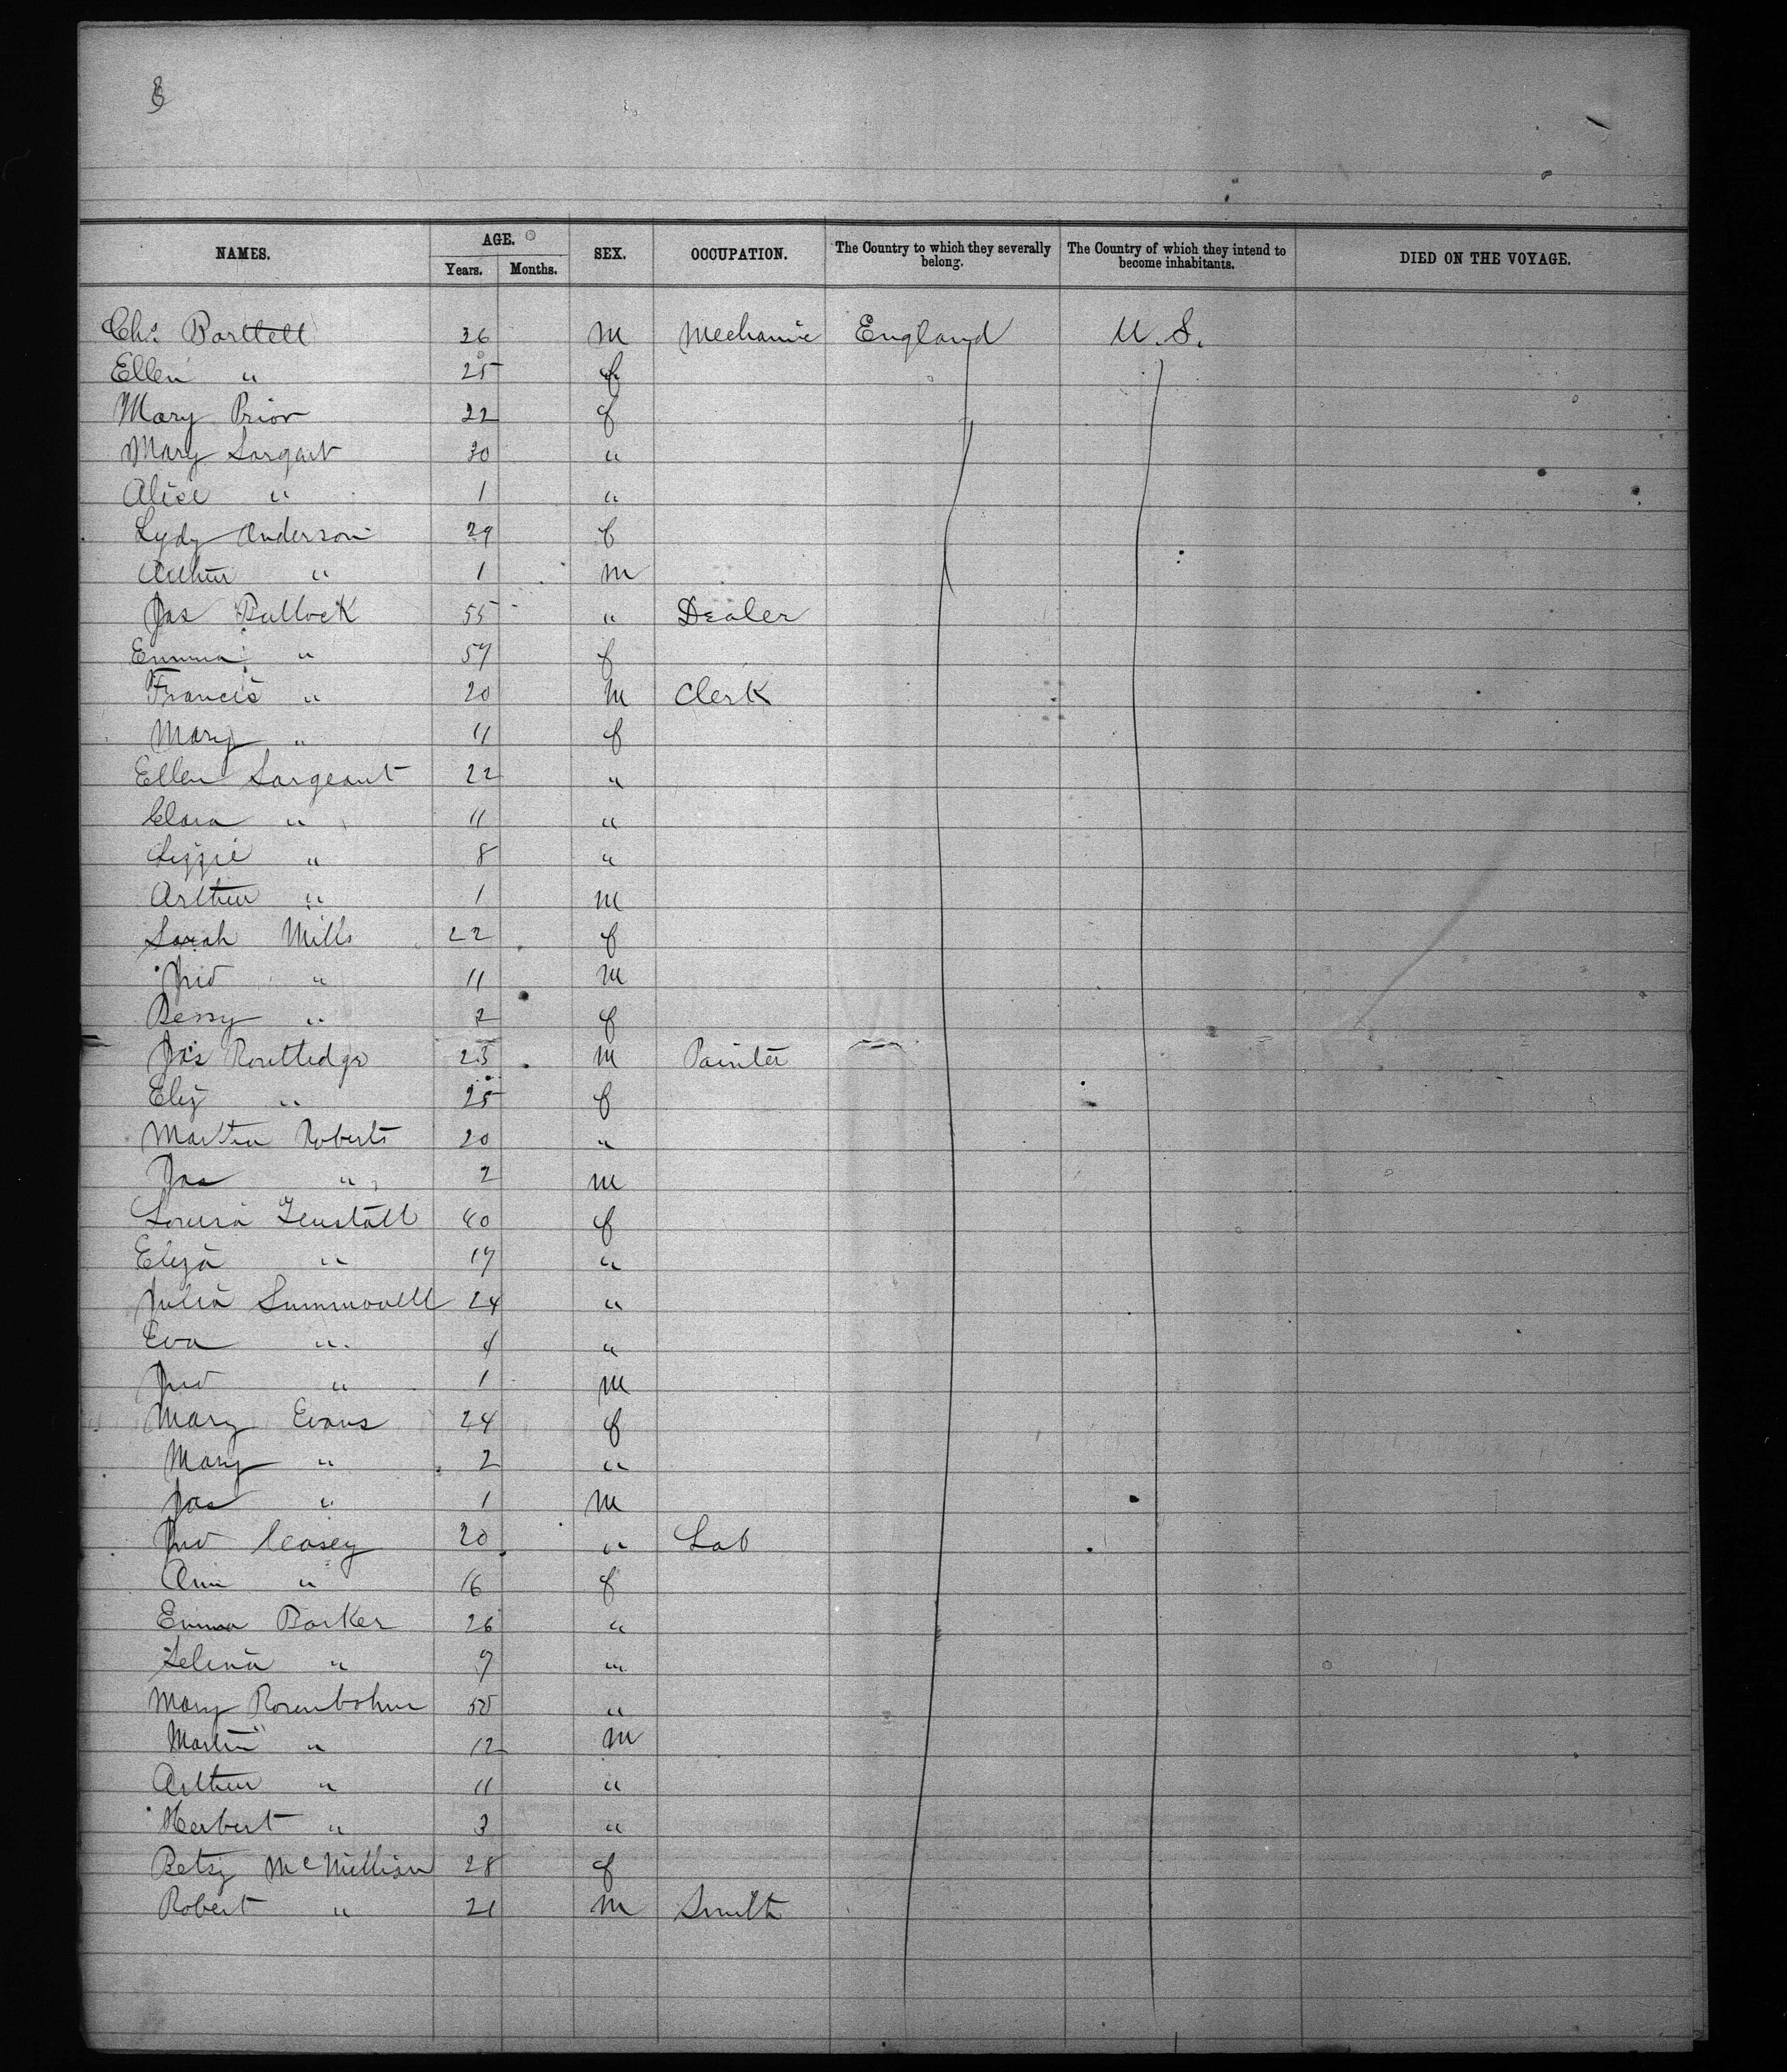 8
NAMES. AGE. SEX. OCCUPATION. The Country to which they severally belong. The Country of which they intend to become inhabitants. DIED ON THE VOYAGE.
Years. Months.
Chs. Bartlett 26 m Mechanic England U.S.
Ellen " 25 f
Mary Prior 22 f
Mary Sargant 30 "
Alice " 1 "
Lydy Anderson 29 f
Arthur " 1 m
Jas Bullock 55 " Dealer
Emma " 57 f
Francis " 20 m Clerk
Mary " 11 f
Ellen Sargeant 22 "
Clara " 11 "
Lizzie " 8 "
Arthur " 1 m
Sarah Mills 22 f
Jno " 11 m
Bessy " 2 f
Jos Routledge 23 m Painter
Eliz " 25 f
Martha Roberts 20 "
Jas " 2 m
Louisa 40 f
Eliza " 17 "
Julia 24 "
Eva " 4 "
Jno " 1 m
Mary Evans 24 f
Mary " 2 "
Jas " 1 m
Jno Casey 20 " Lab
Ann " 16 f
Emma Barker 26 "
Selina " 9 "
Mary Rosenbohm "
Martin " 12 m
Arthur " 11 "
Herbert " 3 "
Betsy McMillian 28 f
Robert " 21 m Smith